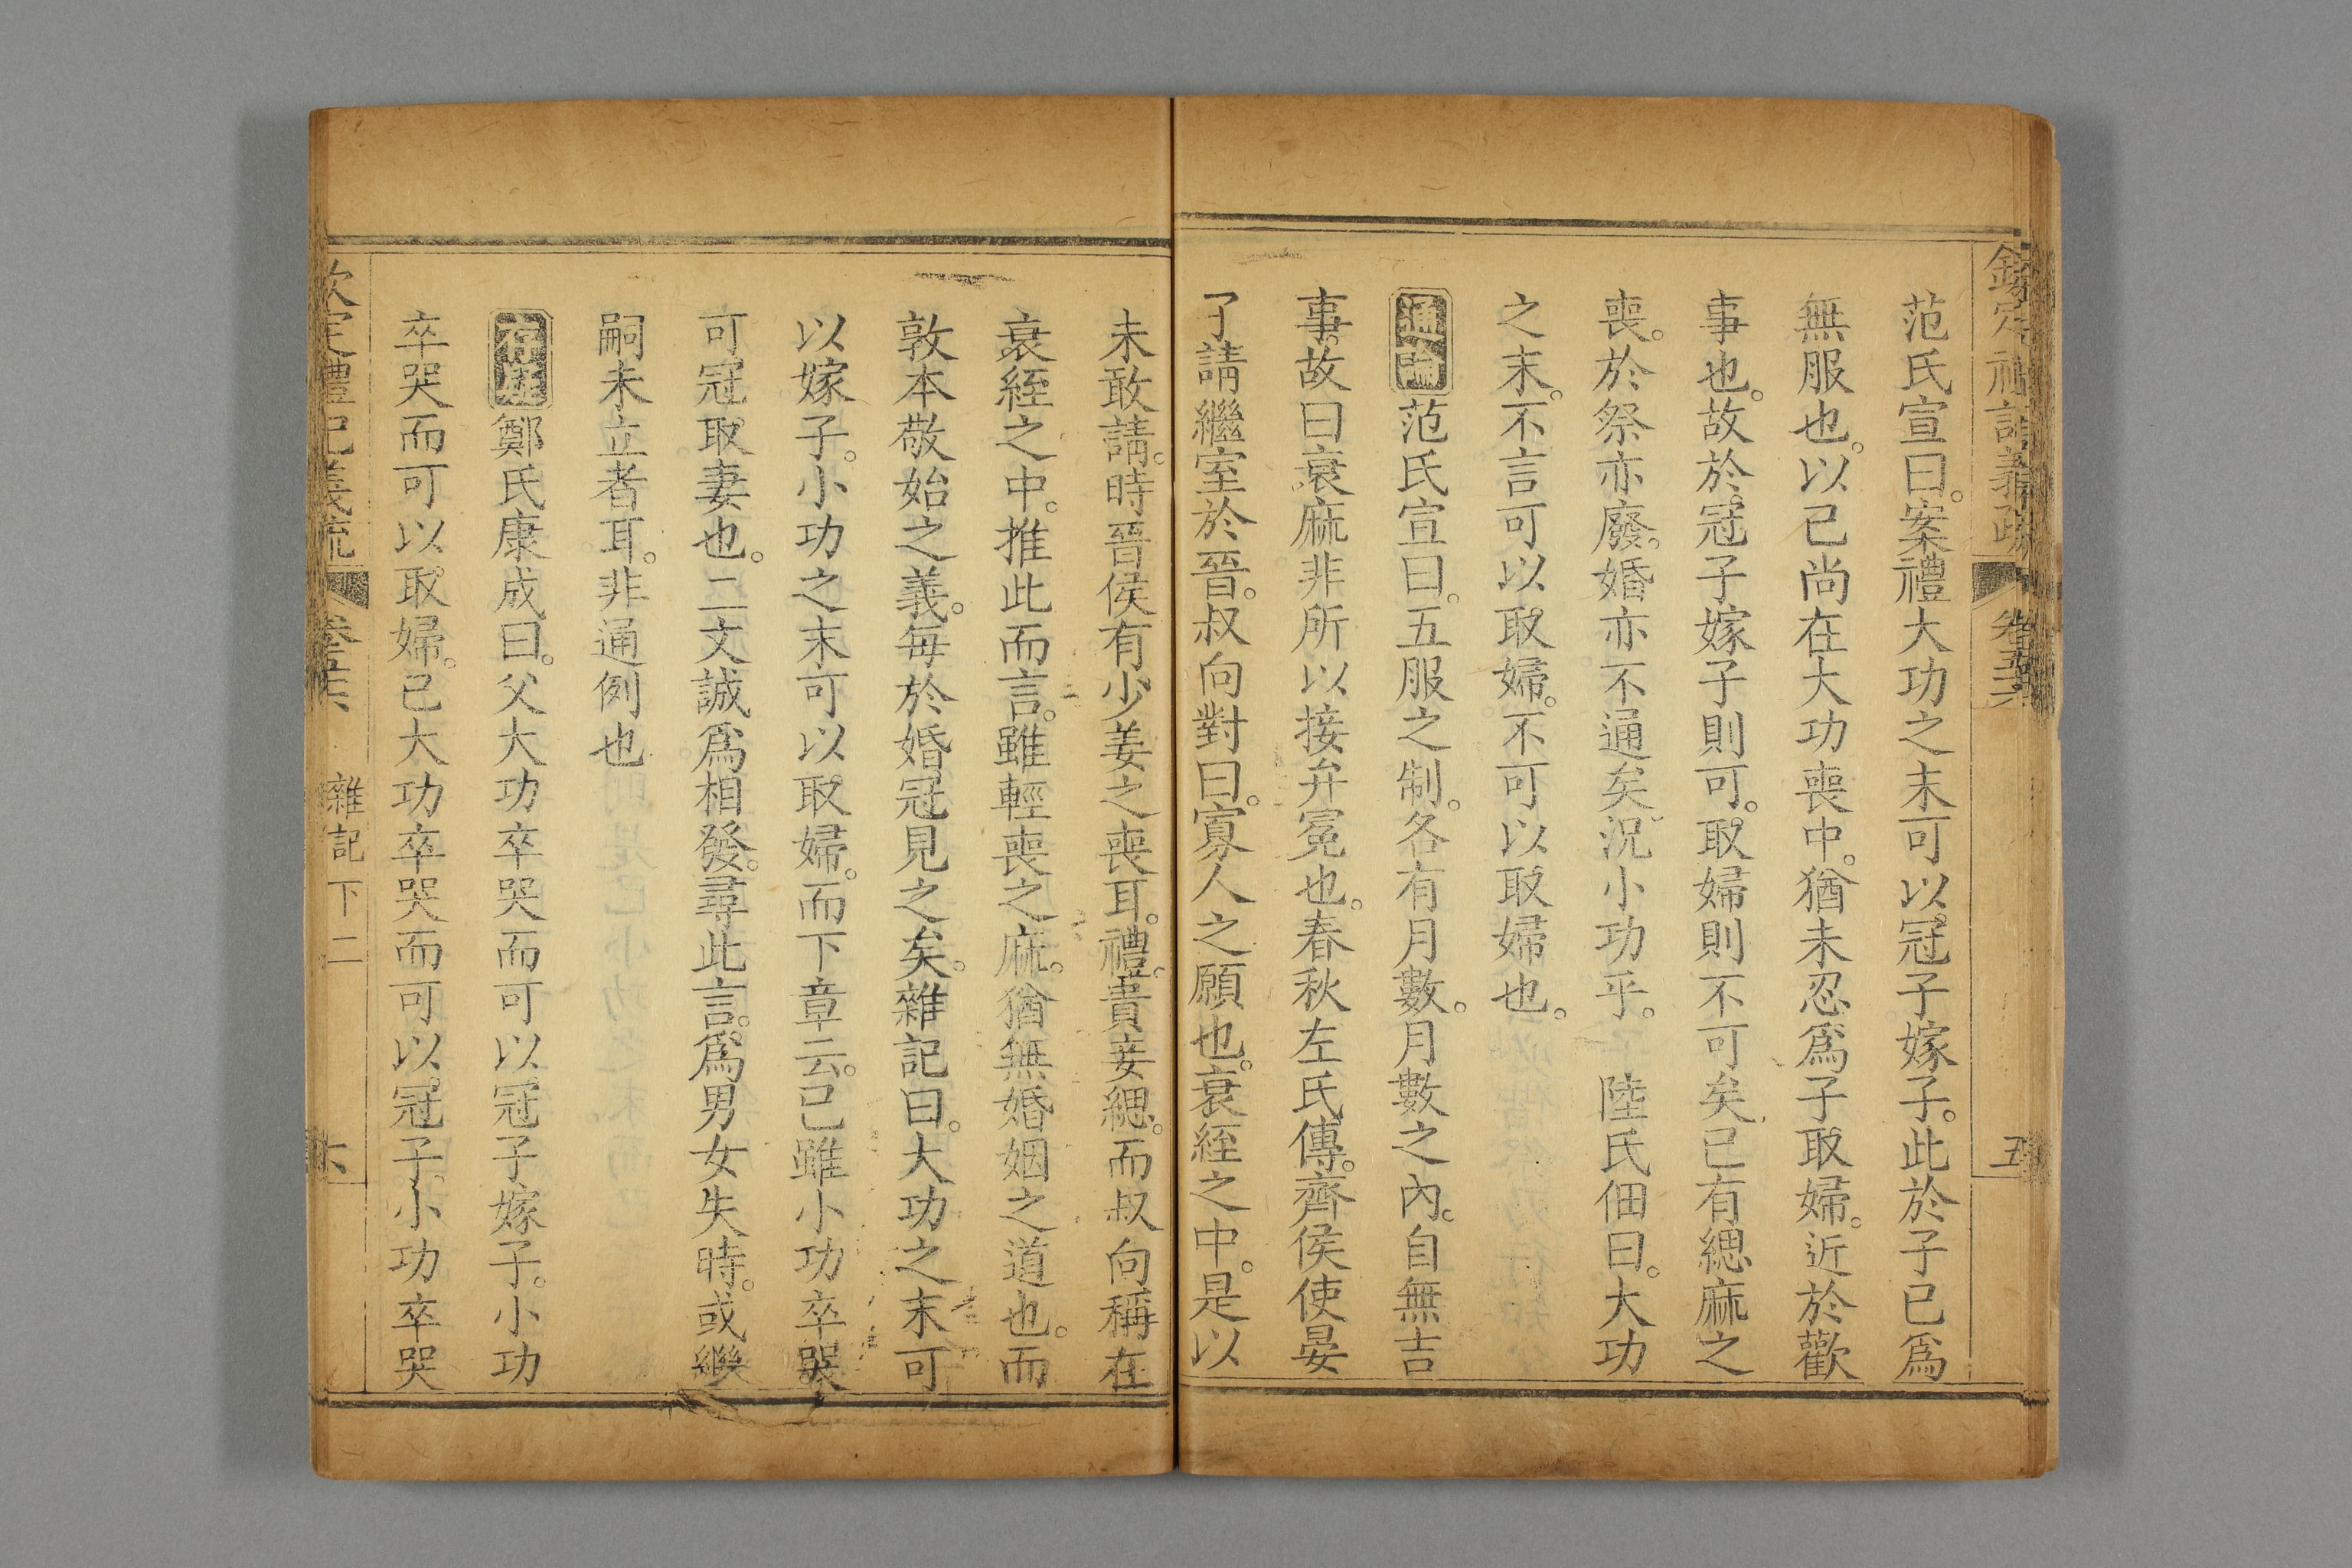 欽定禮記義疏 卷五十六 五
范氏宣曰。案禮大功之末可以冠子嫁子。此於子已爲
無服也。以己尚在大功喪中。猶未忍爲子取婦。近於歡
事也。故於冠子嫁子則可。取婦則不可矣。己有緦麻之
喪。於祭亦廢。婚亦不通矣。況小功乎。 陸氏佃曰。大功
之末。不言可以取婦。不可以取婦也。
通論 范氏宣曰。五服之制。各有月數。月數之內。自無吉
事。故曰衰麻非所以接弁冕也。春秋左氏傳。齊侯使晏
子請繼室於晉。叔向對曰。寡人之願也。衰絰之中。是以
未敢請。時晉侯有少姜之喪耳。禮。貴妾緦。而叔向稱在
衰絰之中。推此而言。雖輕喪之麻。猶無婚姻之道也。而
敦本敬始之義。每於婚冠見之矣。雜記曰。大功之末可
以嫁子。小功之末可以取婦。而下章云。己雖小功卒哭
可冠取妻也。二文誠爲相發。尋此言。爲男女失時。或繼
嗣未立者耳。非通例也
存疑 鄭氏康成曰。父大功卒哭而可以冠子嫁子。小功
卒哭而可以取婦。己大功卒哭而可以冠子。小功卒哭
欽定禮記義疏 卷五十六 雜記下二 六